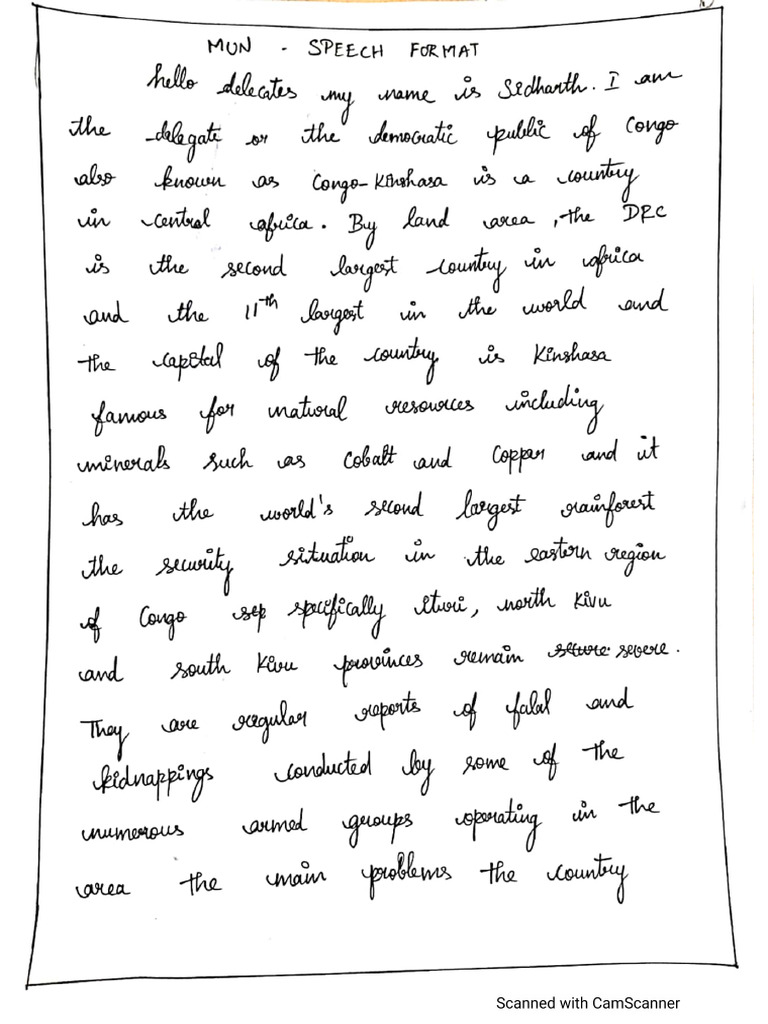 MUN - SPEECH FORMAT
hello delecates my name is Sidharth. I am
the delegate or the democratic public of Congo
also known as Congo-Kinshasa is a country
in central africa. By land area, the DRC
is the second largest country in africa
and the 11th largest in the world and
the capital of the country is Kinshasa
famous for natural resources including
minerals such as Cobalt and Coppar and it
has the world's second largest rainforest
the security situation in the eastern region
of Congo sep specifically Ituri, north Kivu
and south Kivu provinces remain severe.
They are regular reports of falal and
kidnappings conducted by some of the
numerous armed groups operating in the
area the main problems the country
Scanned with CamScanner